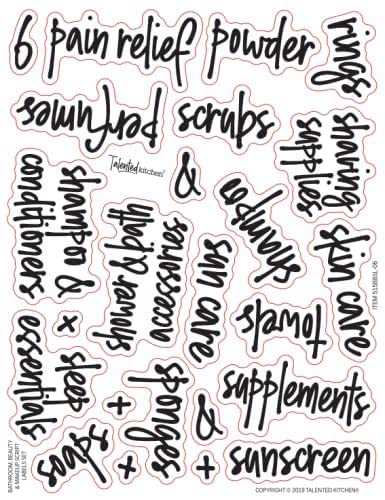 6
pain relief
powder
rings
perfumes
scrubs
shaving
supplies
Talented kitchen®
&
shampoo &
conditioners
shower & bath
accessories
shampoo
sun care
skin care
ITEM
x
towels
sleep
essentials
sponges
+
&
supplements
soaps
+
+
sunscreen
BATHROOM, BEAUTY
& MAKEUP SCRIPT
LABELS SET
COPYRIGHT © 2019 TALENTED KITCHEN®